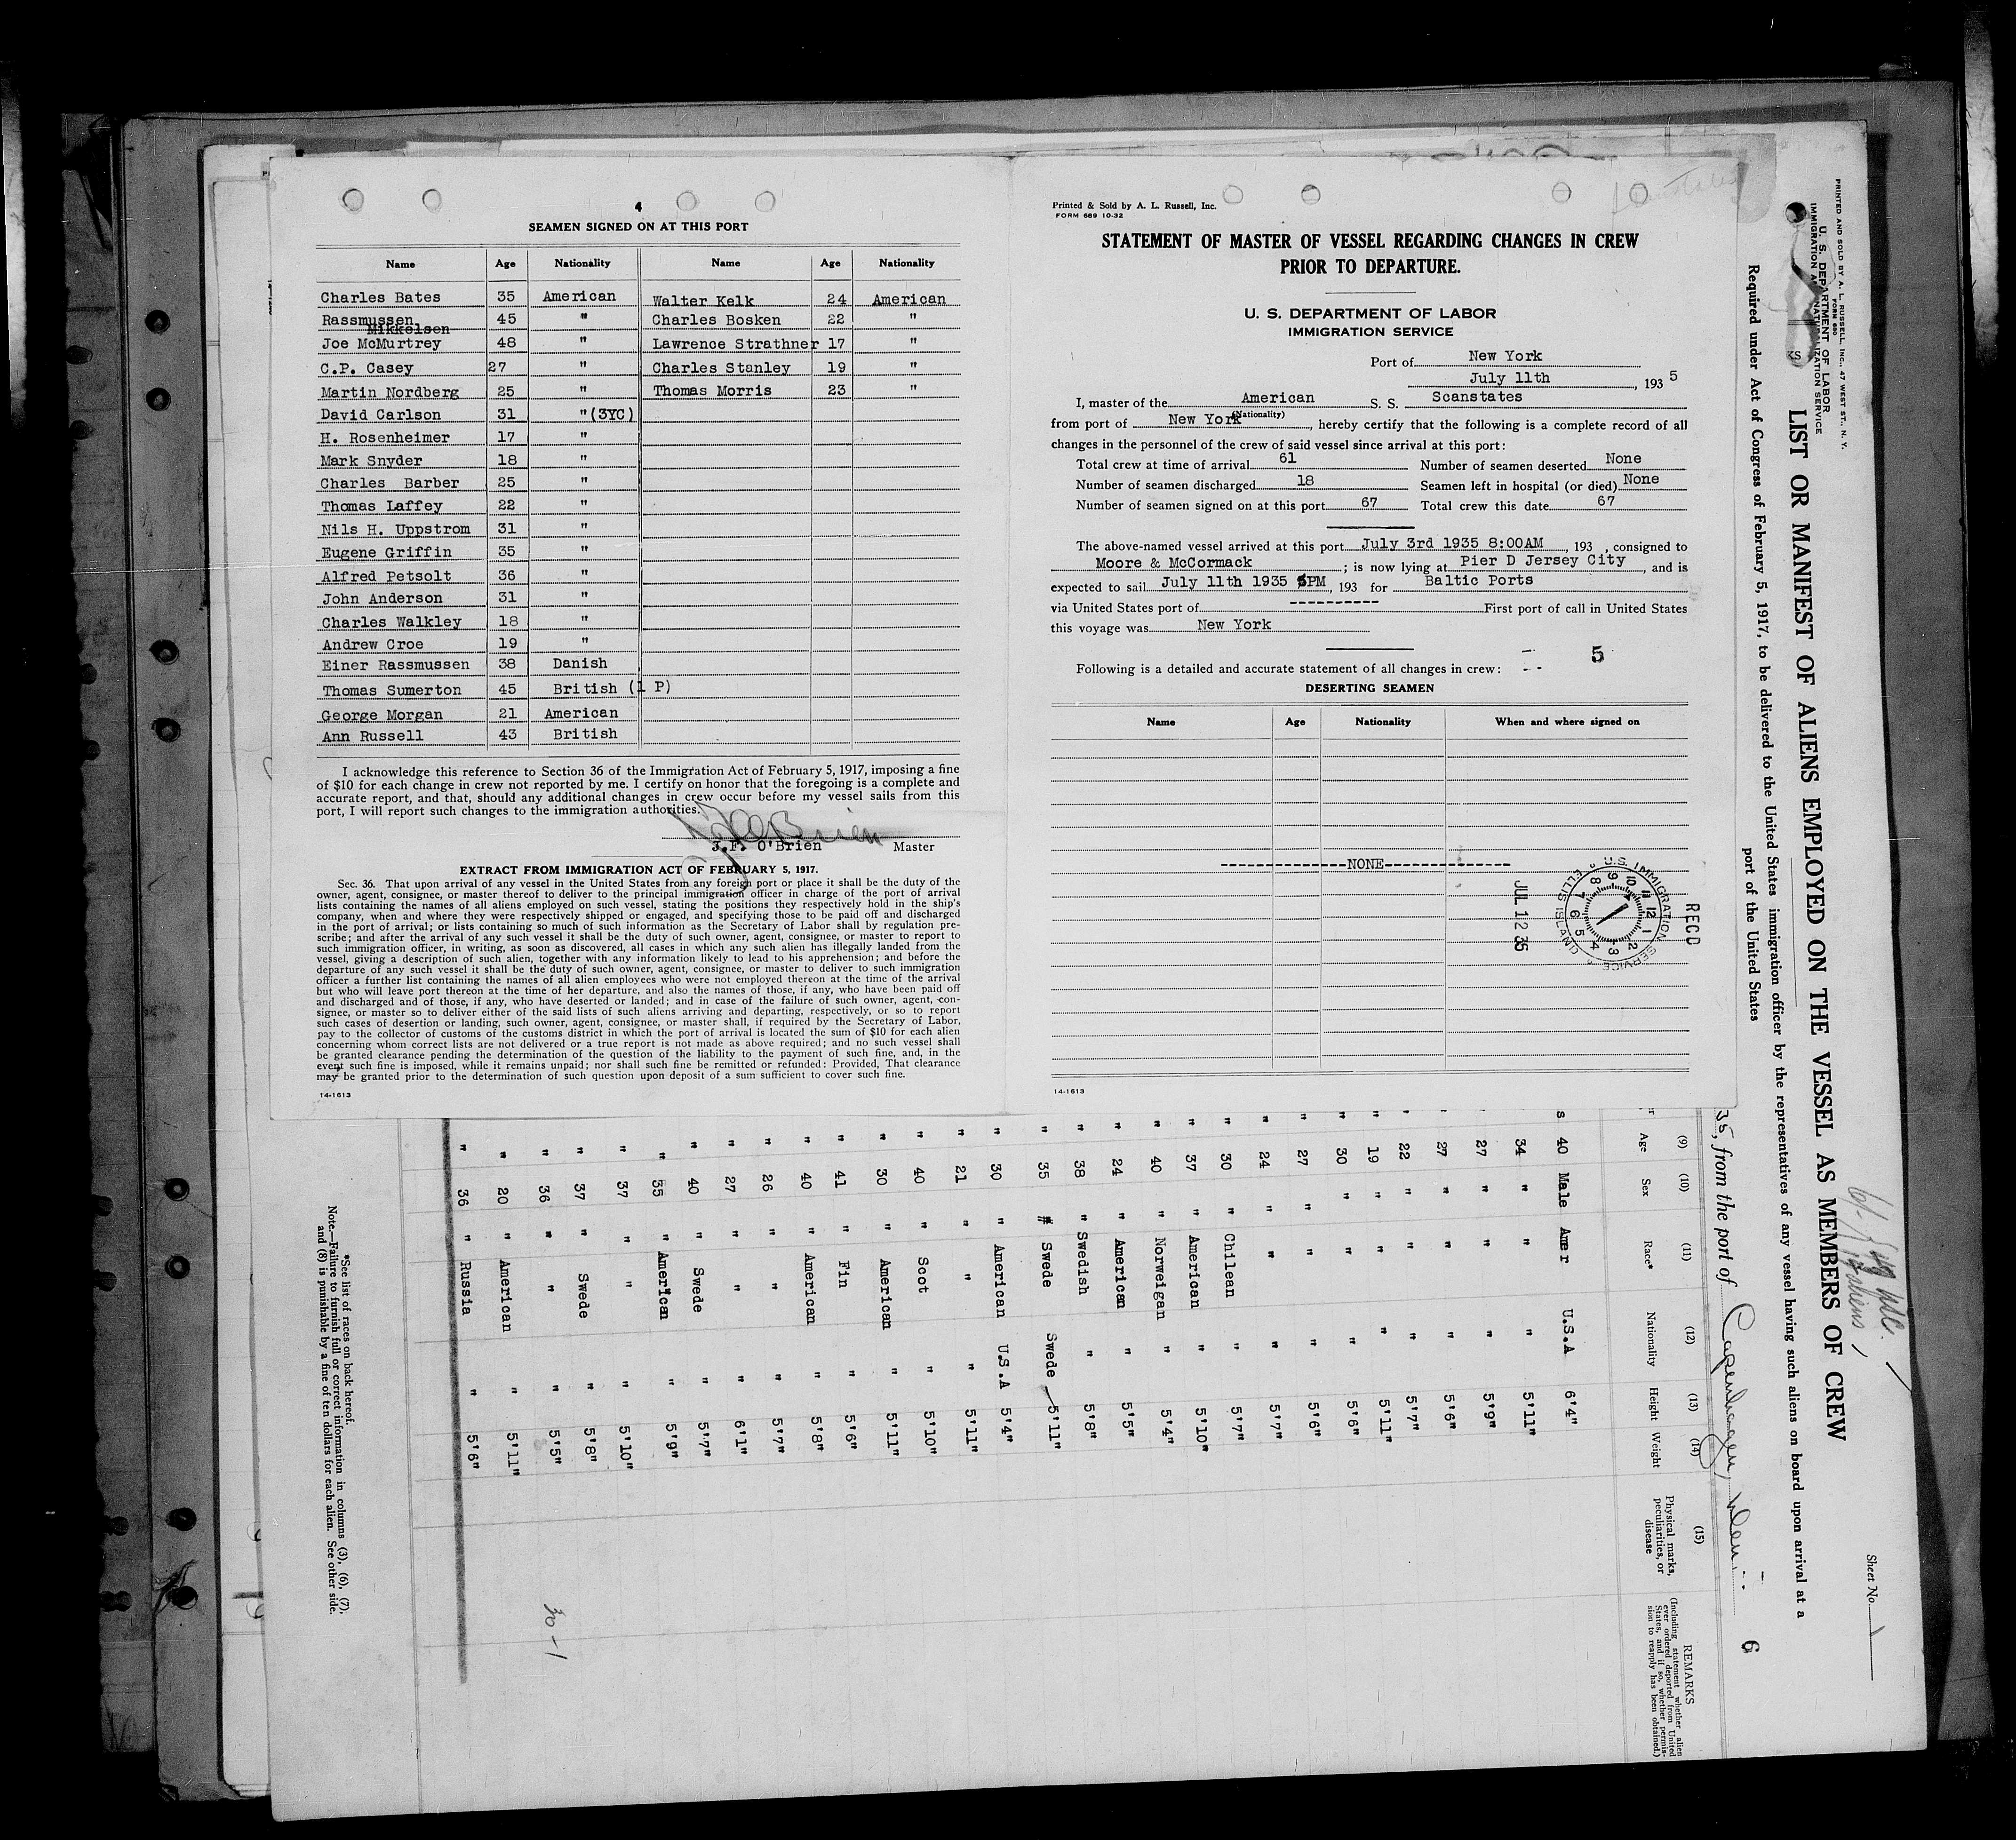 4
SEAMEN SIGNED ON AT THIS PORT
Name Age Nationality Name Age Nationality
Charles Bates 35 American Walter Kelk 24 American
Rassmussen Mikkelsen 45 " Charles Bosken 22 "
Joe McMurtrey 48 " Lawrence Strathner 17 "
C.P. Casey 27 " Charles Stanley 19 "
Martin Nordberg 25 " Thomas Morris 23 "
David Carlson 31 "(3YC)
H. Rosenheimer 17 "
Mark Snyder 18 "
Charles Barber 25 "
Thomas Laffey 22 "
Nils H. Uppstrom 31 "
Eugene Griffin 35 "
Alfred Petsolt 36 "
John Anderson 31 "
Charles Walkley 18 "
Andrew Croe 19 "
Einer Rassmussen 38 Danish
Thomas Sumerton 45 British (1 P)
George Morgan 21 American
Ann Russell 43 British
I acknowledge this reference to Section 36 of the Immigration Act of February 5, 1917, imposing a fine
of $10 for each change in crew not reported by me. I certify on honor that the foregoing is a complete and
accurate report, and that, should any additional changes in crew occur before my vessel sails from this
port, I will report such changes to the immigration authorities.
J.F. O'Brien Master
EXTRACT FROM IMMIGRATION ACT OF FEBRUARY 5, 1917.
Sec. 36. That upon arrival of any vessel in the United States from any foreign port or place it shall be the duty of the
owner, agent, consignee, or master thereof to deliver to the principal immigration officer in charge of the port of arrival
lists containing the names of all aliens employed on such vessel, stating the positions they respectively hold in the ship's
company, when and where they were respectively shipped or engaged, and specifying those to be paid off and discharged
in the port of arrival; or lists containing so much of such information as the Secretary of Labor shall by regulation pre-
scribe; and after the arrival of any such vessel it shall be the duty of such owner, agent, consignee, or master to report to
such immigration officer, in writing, as soon as discovered, all cases in which any such alien has illegally landed from the
vessel, giving a description of such alien, together with any information likely to lead to his apprehension; and before the
departure of any such vessel it shall be the duty of such owner, agent, consignee, or master to deliver to such immigration
officer a further list containing the names of all alien employees who were not employed thereon at the time of the arrival
but who will leave port thereon at the time of her departure, and also the names of those, if any, who have been paid off
and discharged and of those, if any, who have deserted or landed; and in case of the failure of such owner, agent, con-
signee, or master so to deliver either of the said lists of such aliens arriving and departing, respectively, or so to report
such cases of desertion or landing, such owner, agent, consignee, or master shall, if required by the Secretary of Labor,
pay to the collector of customs of the customs district in which the port of arrival is located the sum of $10 for each alien
concerning whom correct lists are not delivered or a true report is not made as above required; and no such vessel shall
be granted clearance pending the determination of the question of the liability to the payment of such fine, and, in the
event such fine is imposed, while it remains unpaid; nor shall such fine be remitted or refunded: Provided, That clearance
may be granted prior to the determination of such question upon deposit of a sum sufficient to cover such fine.
14-1613
Printed & Sold by A. L. Russell, Inc.
FORM 689 10-32
STATEMENT OF MASTER OF VESSEL REGARDING CHANGES IN CREW
PRIOR TO DEPARTURE.
U. S. DEPARTMENT OF LABOR
IMMIGRATION SERVICE
Port of New York
July 11th, 1935
I, master of the American S. S. Scanstates
(Nationality)
from port of New York, hereby certify that the following is a complete record of all
changes in the personnel of the crew of said vessel since arrival at this port:
Total crew at time of arrival 61 Number of seamen deserted None
Number of seamen discharged 18 Seamen left in hospital (or died) None
Number of seamen signed on at this port 67 Total crew this date 67
The above-named vessel arrived at this port July 3rd 1935 8:00AM, 193 , consigned to
Moore & McCormack; is now lying at Pier D Jersey City, and is
expected to sail July 11th 1935 5PM, 193 for Baltic Ports
via United States port of ---------- First port of call in United States
this voyage was New York
5
Following is a detailed and accurate statement of all changes in crew:
DESERTING SEAMEN
Name Age Nationality When and where signed on
NONE
RECD
U.S. IMMIGRATION SERVICE ELLIS ISLAND
12 1 2 3 4 5 6 7 8 9 10 11
JUL 12 35
14-1613
PRINTED AND SOLD BY A. L. RUSSELL, INC., 47 WEST ST., N. Y.
FORM 680
U. S. DEPARTMENT OF LABOR
IMMIGRATION AND NATURALIZATION SERVICE
Sheet No. 1
LIST OR MANIFEST OF ALIENS EMPLOYED ON THE VESSEL AS MEMBERS OF CREW
Required under Act of Congress of February 5, 1917, to be delivered to the United States immigration officer by the representatives of any vessel having such aliens on board upon arrival at a
port of the United States
35, from the port of Copenhagen, Den.
6
(9) (10) (11) (12) (13) (14) (15)
Age Sex Race* Nationality Height Weight Physical marks, peculiarities, or disease
REMARKS
(Including statement whether alien
ever ordered deported from United
States, and if so, whether permis-
sion to reapply has been obtained.)
s 40 Male Amer U.S.A 6'4"
34 " " " 5'11"
" 27 " " " 5'9"
" 27 " " " 5'6"
" 22 " " " 5'7"
" 19 " " " 5'11"
" 30 " " " 5'6"
" 27 " " " 5'6"
" 24 " " " 5'7"
" 30 " Chilean " 5'7"
" 37 " American " 5'10"
" 40 " Norweigan " 5'4"
" 24 " American " 5'5"
" 38 " Swedish " 5'8"
" 35 " Swede Swede 5'11"
" 30 " American U.S.A 5'4"
" 21 " " " 5'11"
" 40 " Scot " 5'10"
" 30 " American " 5'11"
" 41 " Fin " 5'6"
" 40 " American " 5'8"
" 26 " " " 5'7"
" 27 " " " 6'1"
" 40 " Swede " 5'7"
" 35 " American " 5'9"
" 37 " " " 5'10"
" 37 " Swede " 5'8"
" 36 " " " 5'5"
" 20 " American " 5'11"
" 36 " Russia " 5'6"
30-1
*See list of races on back hereof.
Note.—Failure to furnish full or correct information in columns (3), (6), (7),
and (8) is punishable by a fine of ten dollars for each alien. See other side.